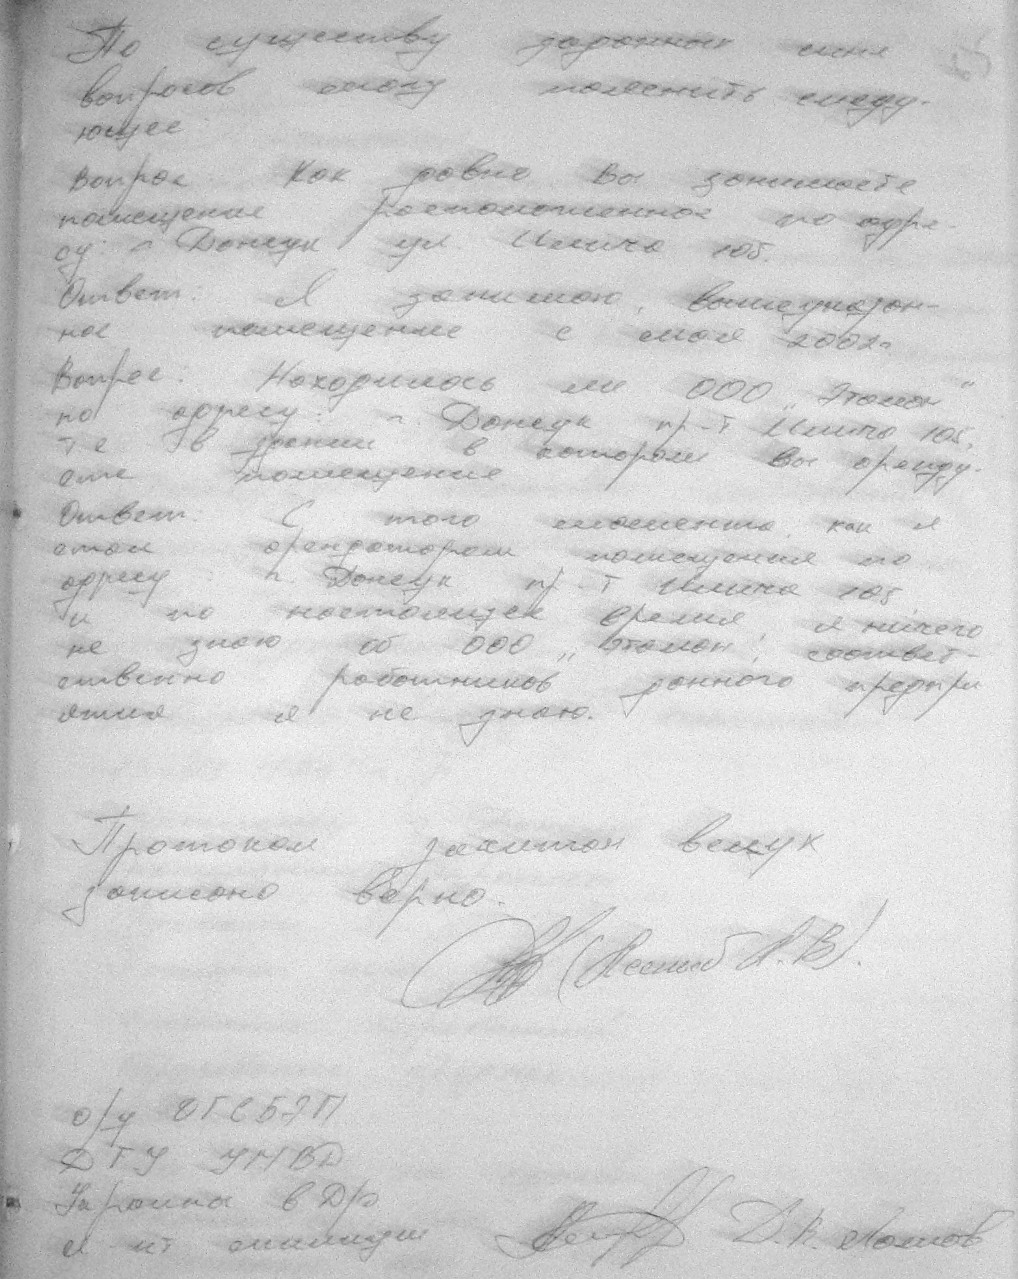 По существу заданных мне
вопросов могу пояснить следу-
ющее
Вопрос: Как давно Вы занимаете
помещение расположенное по адре-
су: г. Донецк ул. Ильича 105.
Ответ: Я занимаю вышеуказан-
ное помещение с мая 2002г.
Вопрос: Находилось ли ООО „Эталон"
по адресу: г. Донецк пр-т Ильича 105,
т.е. в здании в котором Вы аренду-
ете помещение
Ответ: С того момента, как я
стал арендатором помещения по
адресу: г. Донецк пр-т Ильича 105
и по настоящее время я ничего
не знаю об ООО „Эталон", соответ-
ственно работников данного предпри
ятия я не знаю.
Протокол зачитан вслух
записано верно.
В).
о/у ОГСБЭП
ДГУ УМВД
Украины в До
л-нт милиции Д.В.